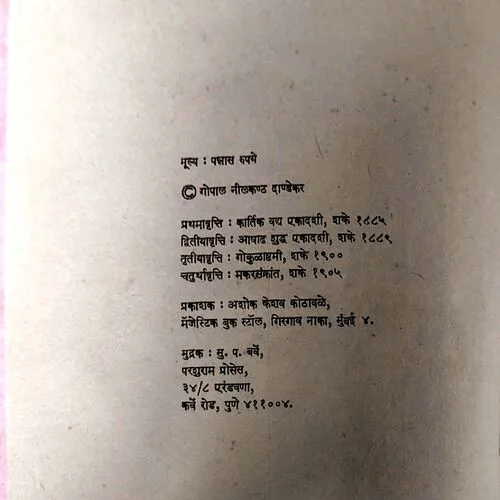 मूल्य : पन्नास रुपये
© गोपाल नीलकण्ठ दाण्डेकर
प्रथमावृत्ति : कार्तिक वद्य एकादशी, शके १८८५
द्वितीयावृत्ति : आषाढ शुद्ध एकादशी, शके १८८९
तृतीयावृत्ति : गोकुळाष्टमी, शके १९००
चतुर्थावृत्ति : मकरसंक्रांत, शके १९०५
प्रकाशक : अशोक केशव कोठावळे,
मॅजेस्टिक बुक स्टॉल, गिरगाव नाका, मुंबई ४.
मुद्रक : सु. प. बर्वे,
परशुराम प्रोसेस,
३४/८ एरंडवणा,
कर्वे रोड, पुणे ४११००४.